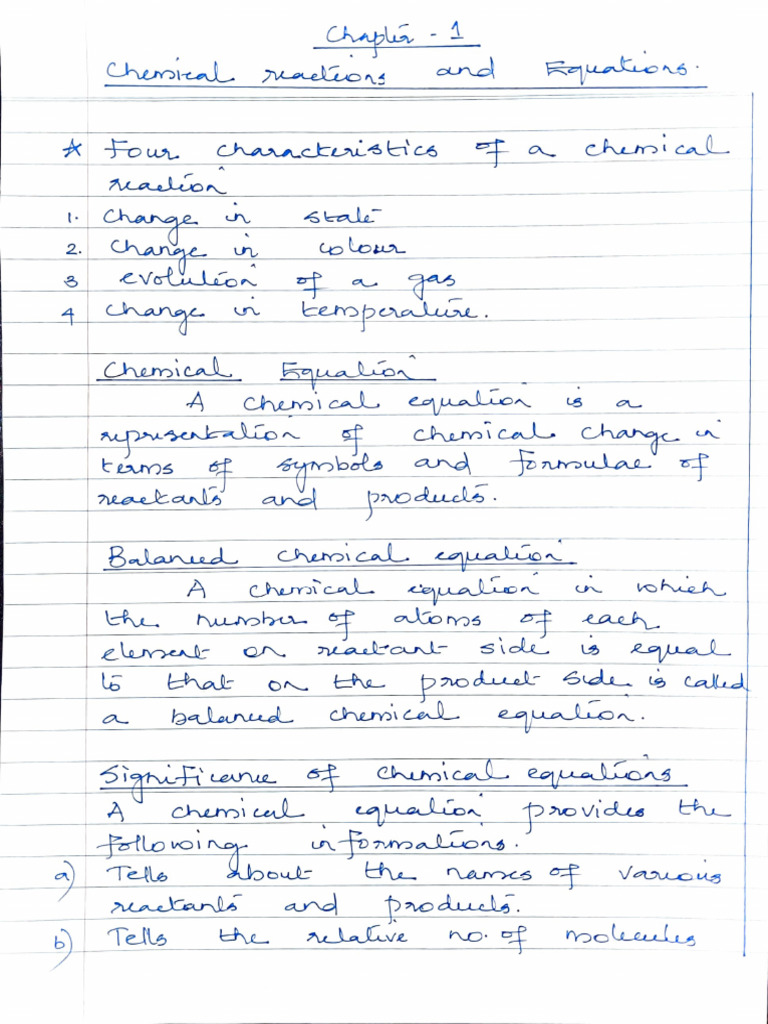 Chapter - 1
Chemical reactions and Equations.
* Four characteristics of a chemical
reaction
1. Change in state
2. Change in colour
3 evolution of a gas
4 Change in temperature.
Chemical Equation
A chemical equation is a
representation of chemical change in
terms of symbols and formulae of
reactants and products.
Balanced chemical equation
A chemical equation in which
the number of atoms of each
element on reactant side is equal
to that on the product side is called
a balanced chemical equation.
Significance of chemical equations
A chemical equation provides the
following informations.
a) Tells about the names of various
reactants and products.
b) Tells the relative no. of molecules